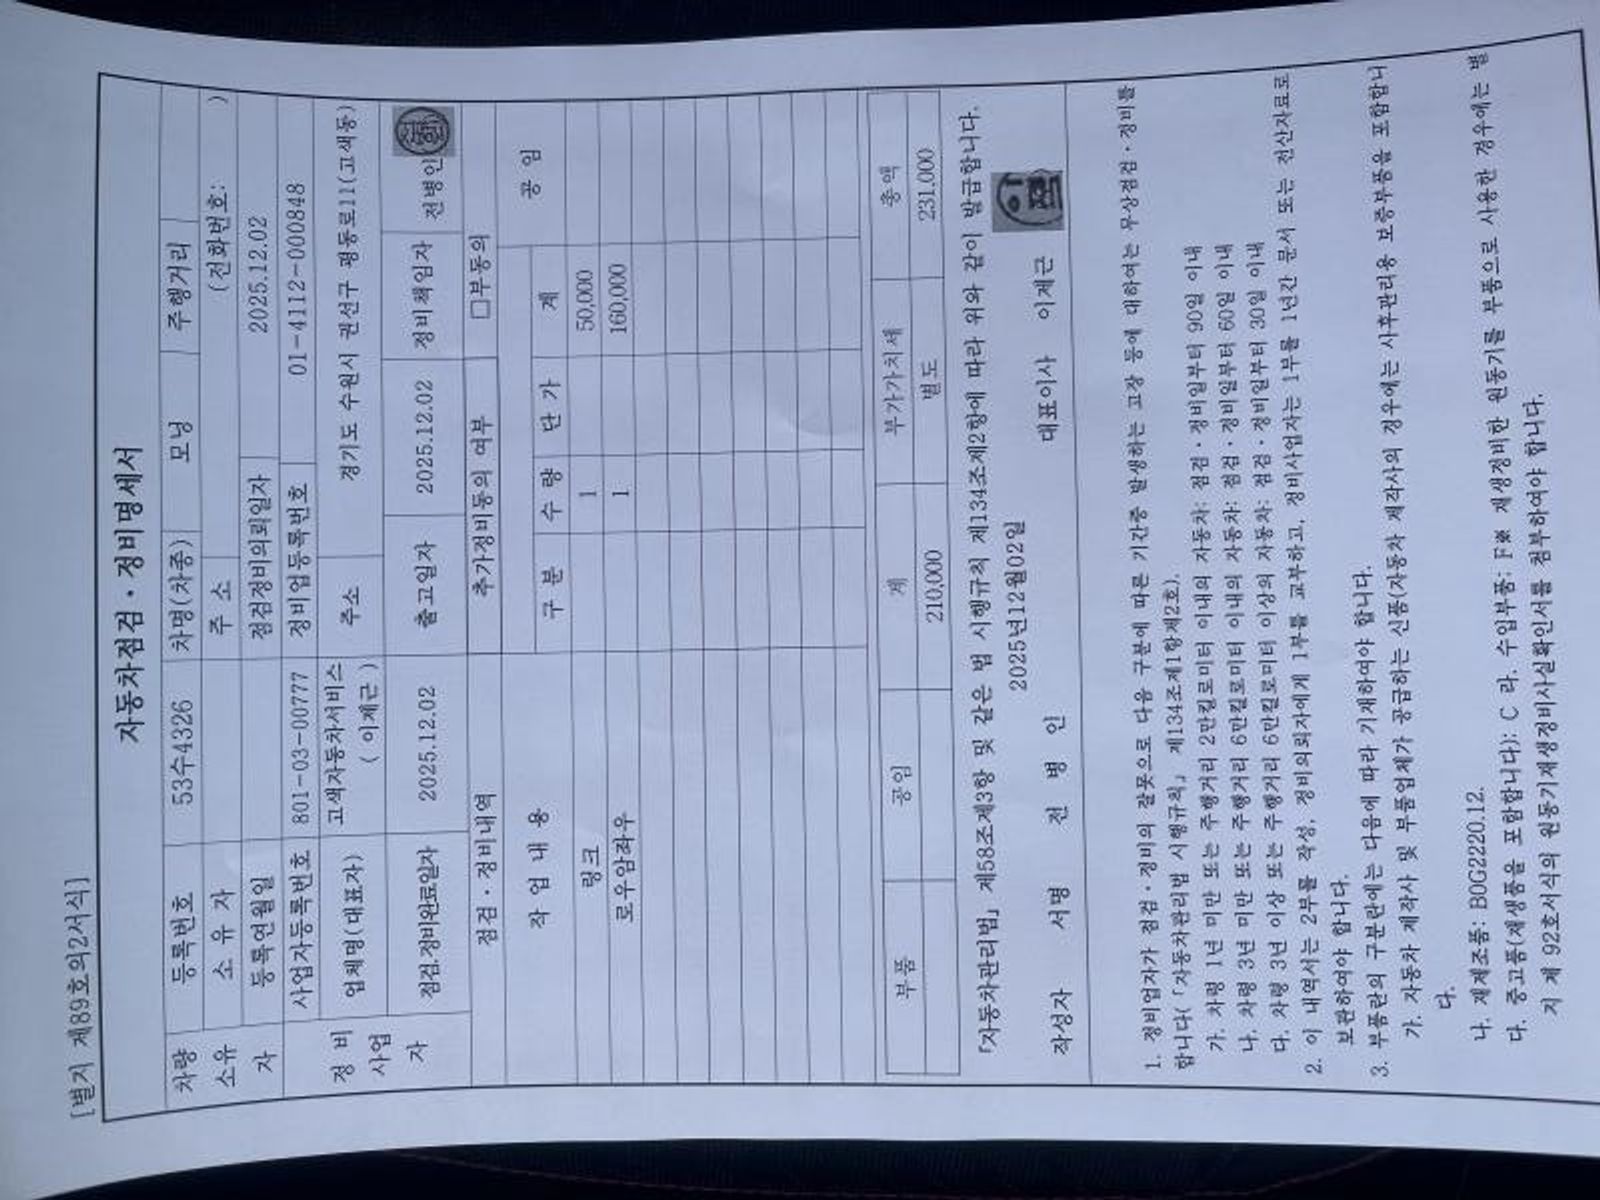 [별지 제89호의2서식]
자동차점검·정비명세서
차량 소유자 등록번호 53수4326 차명(차종) 모닝 주행거리
소 유 자 주 소 (전화번호: )
등록연월일 점검정비의뢰일자 2025.12.02
정 비 사업 자 사업자등록번호 801-03-00777 정비업등록번호 01-4112-000848
업체명(대표자) 고색자동차서비스 ( 이제근 ) 주소 경기도 수원시 권선구 평동로11(고색동)
점검.정비완료일자 2025.12.02 출고일자 2025.12.02 정비책임자 전병인
점검·정비내역 추가정비동의 여부 □부동의
작 업 내 용 구 분 수 량 단 가 계 공 임
링크 1 50,000
로우암좌우 1 160,000
부품 공임 계 부가가치세 총액
210,000 별도 231.000
「자동차관리법」 제58조제3항 및 같은 법 시행규칙 제134조제2항에 따라 위와 같이 발급합니다.
2025년12월02일
작성자 서명 전 병 인 대표이사 이제근
1. 정비업자가 점검·정비의 잘못으로 다음 구분에 따른 기간중 발생하는 고장 등에 대하여는 무상점검·정비를
합니다(「자동차관리법 시행규칙」 제134조제1항제2호).
가. 차령 1년 미만 또는 주행거리 2만킬로미터 이내의 자동차: 점검·정비일부터 90일 이내
나. 차령 3년 미만 또는 주행거리 6만킬로미터 이내의 자동차: 점검·정비일부터 60일 이내
다. 차령 3년 이상 또는 주행거리 6만킬로미터 이상의 자동차: 점검·정비일부터 30일 이내
2. 이 내역서는 2부를 작성, 정비의뢰자에게 1부를 교부하고, 정비사업자는 1부를 1년간 문서 또는 전산자료로
보관하여야 합니다.
3. 부품란의 구분란에는 다음에 따라 기재하여야 합니다.
가. 자동차 제작사 및 부품업체가 공급하는 신품(자동차 제작사의 경우에는 사후관리용 보증부품을 포함합니
다.
나. 재제조품: B0G2220.12.
다. 중고품(재생품을 포함합니다): C 라. 수입부품: F※ 재생정비한 원동기를 부품으로 사용한 경우에는 별
지 제 92호서식의 원동기재생정비사실확인서를 첨부하여야 합니다.